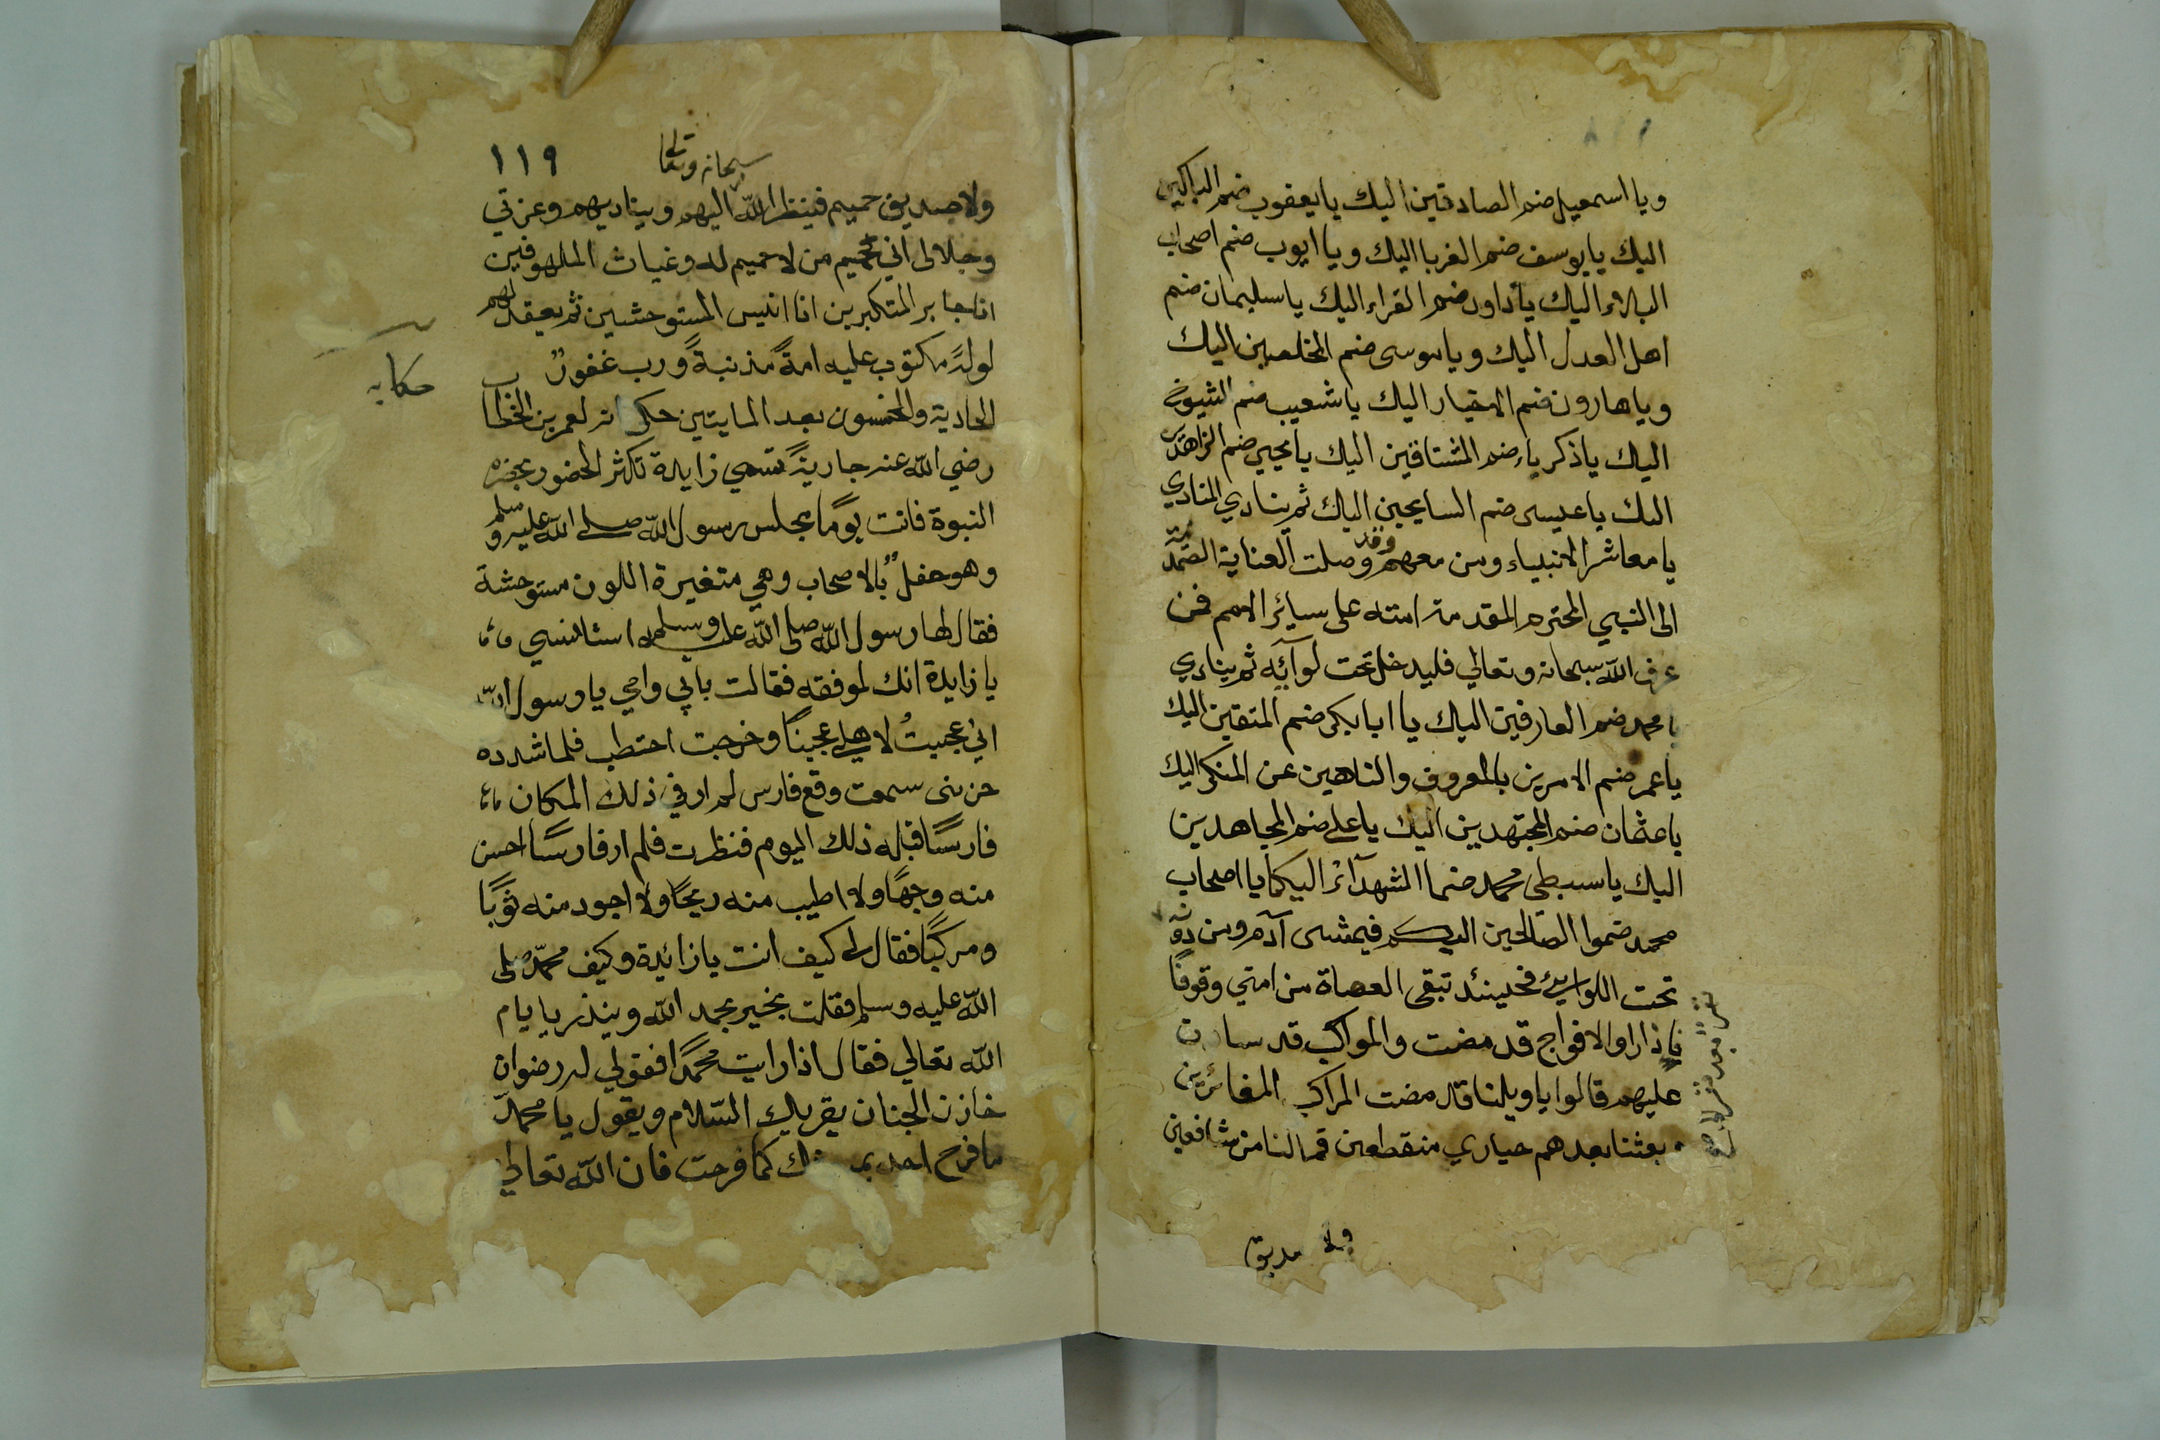 ويا اسمعيل ضم الصادقين اليك يا يعقوب ضم الباكين
اليك يا يوسف ضم الغربا اليك ويا ايوب ضم اصحاب
البلاء اليك يا داود ضم القراء اليك يا سليمان ضم
اهل العدل اليك ويا موسى ضم المخلصين اليك
ويا هارون ضم الاخيار اليك يا شعيب ضم الشيوخ
اليك يا ذكرياء ضم المشتاقين اليك يا يحيي ضم الزاهدين
اليك يا عيسى ضم السايحين اليك ثم ينادي المنادي
يا معاشر الانبياء ومن معهم وقد وصلت العناية
الى النبي المحترم المقدمة امته على سائر الامم فمن
عرف الله سبحانه وتعالي فليدخل تحت لوآئه ثم ينادي
يا محمد ضم العارفين اليك يا ابا بكر ضم المتقين اليك
يا عمر ضم الامرين بالمعروف والناهين عن المنكر اليك
يا عثمان ضم المجتهدين اليك يا علي ضم المجاهدين
اليك يا سبطي محمد ضما الشهدآء اليكما يا اصحاب
محمد ضموا الصالحين اليكم فيمشى آدم ومن دونه
تحت اللواء فحينئد تبقى العصاة من امتي وقوفًا
فإذا راوا الافواج قد مضت والمواكب قد سارت
عليهم قالوا يا ويلنا قد مضت المراكب الفائزين
وبعثنا بعدهم حياري منقطعين فما لنا من شافعين
ولا صديق
١١٩
سبحانه وتعالى
ولا صديق حميم فينظر الله اليهم ويناديهم وعزتي
وجلالى اني حميم من لا حميم له وغياث الملهوفين
انا جابر المتكبرين انا انيس المستوحشين ثم يعقد لهم
لواءً مكتوب عليه امةً مذنبةً ورب غفورٌ
حكاية
الحادية والخمسون بعد المايتين حكى انه لعمر بن الخطاب
رضي الله عنه جاريةً تسمي زايدة تكثر الحضور بحضرة
النبوة فاتت يومًا مجلس رسول الله صلى الله عليه وسلم
وهو حفلٌ بالاصحاب وهي متغيرة اللون مستوحشة
فقال لها رسول الله صلى الله عليه وسلم استانسي
يا زايدة انك لموفقه فقالت بابي وامي يا رسول الله
اني عجبيتُ لاهلي عجينًا وخرجت احتطب فلما شدده
حزمتى سمعت وقع فارس لم ار في ذلك المكان
فارسًا قبله ذلك اليوم فنظرت فلم ار فارسًا احسن
منه وجهًا ولا اطيب منه ريحًا ولا اجود منه ثوبًا
ومركبًا فقال لي كيف انت يا زائيدة وكيف محمدٌ صلى
الله عليه وسلم فقلت بخير بحمد الله وينذر بايام
الله تعالي فقال اذا رايت محمدًا فقولي له رضوان
خازن الجنان يقريك السّلام ويقول يا محمدٌ
ما فرح احد كما فرحت فان الله تعالي